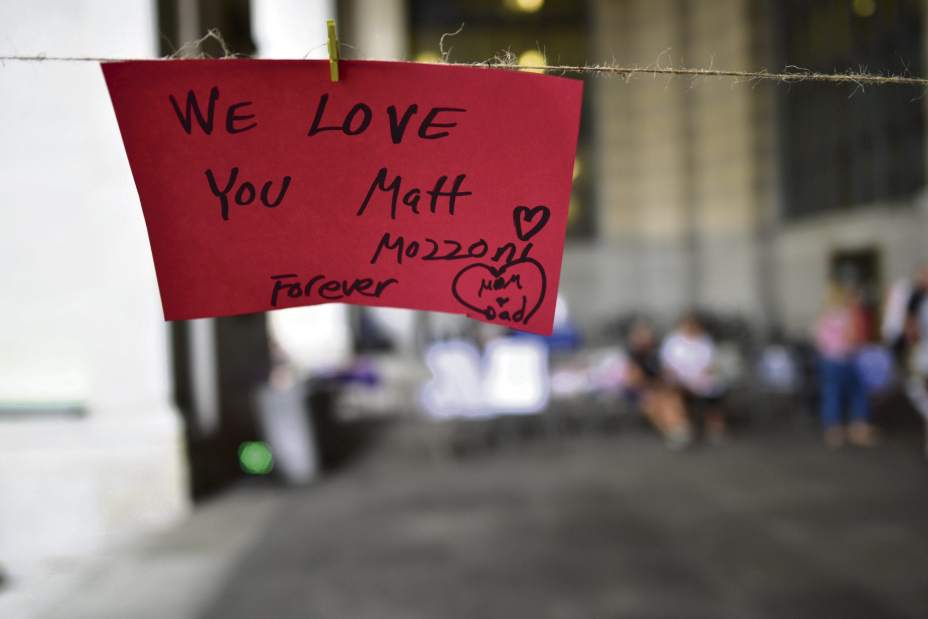 WE LOVE
You Matt
Mozzoni
Forever
MOM
Dad